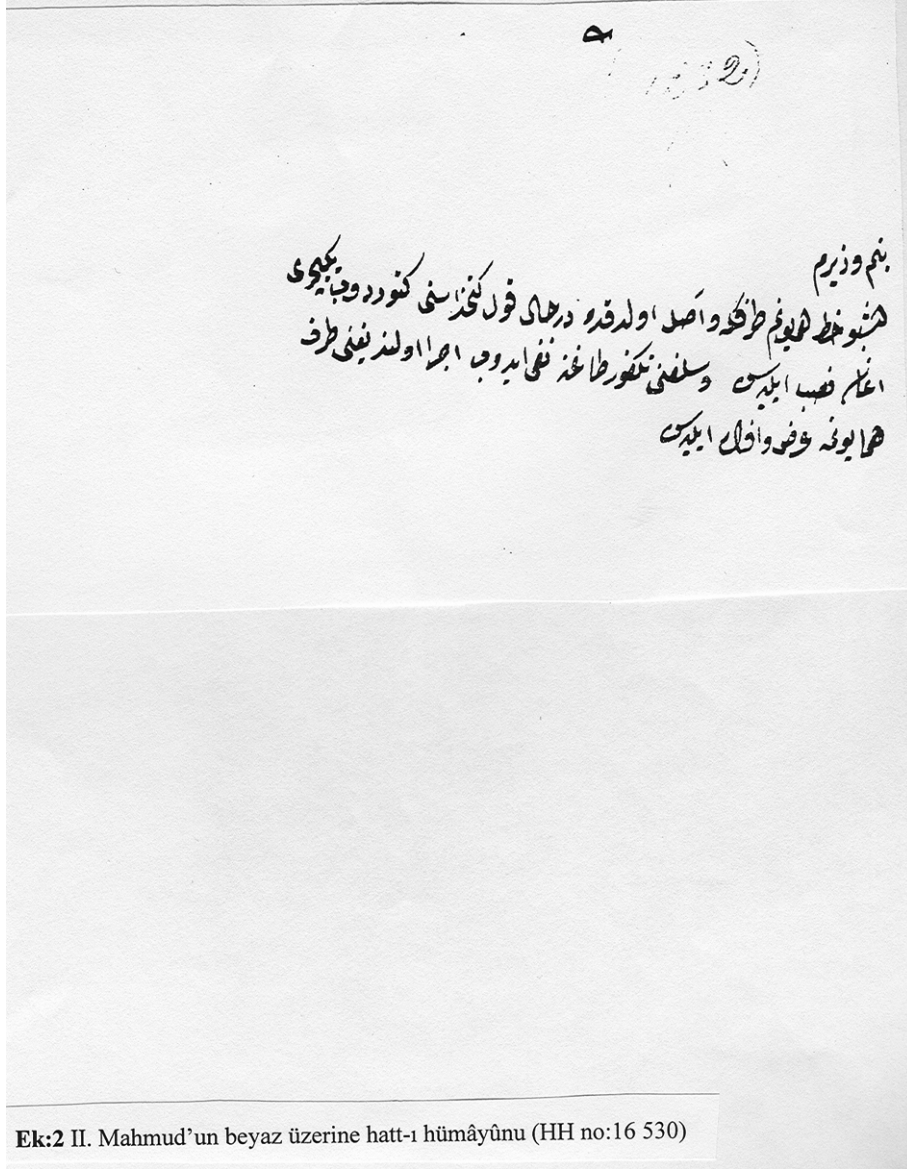 بنم وزيرم
اشبو خط همايونم طرفكه واصل اولدقده درحال قول كتخداسنى كتوردوب يكيچرى
اغاسى نصب ايليه سن وسلفنى تكفور طاغنه نفى ايدوب اجرا اولنديغنى طرف
همايونمه عرض و افاده ايليه سن
Ek:2 II. Mahmud’un beyaz üzerine hatt-ı hümâyûnu (HH no:16 530)